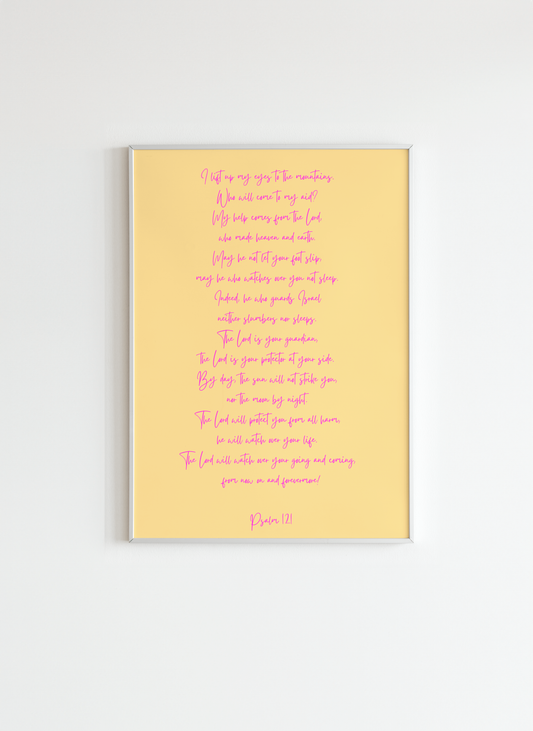 I lift up my eyes to the mountains,
Who will come to my aid?
My help comes from the Lord,
who made heaven and earth.
May he not let your foot slip,
may he who watches over you not sleep.
Indeed, he who guards Israel
neither slumbers nor sleeps.
The Lord is your guardian,
the Lord is your protector at your side.
By day, the sun will not strike you,
nor the moon by night.
The Lord will protect you from all harm,
he will watch over your life.
The Lord will watch over your going and coming,
from now on and forevermore!
Psalm 121